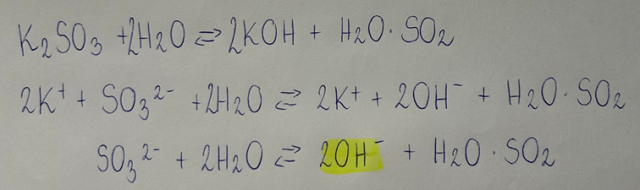 K₂SO₃ + 2H₂O ⇌ 2KOH + H₂O · SO₂
2K⁺ + SO₃²⁻ + 2H₂O ⇌ 2K⁺ + 2OH⁻ + H₂O · SO₂
SO₃²⁻ + 2H₂O ⇌ 2OH⁻ + H₂O · SO₂